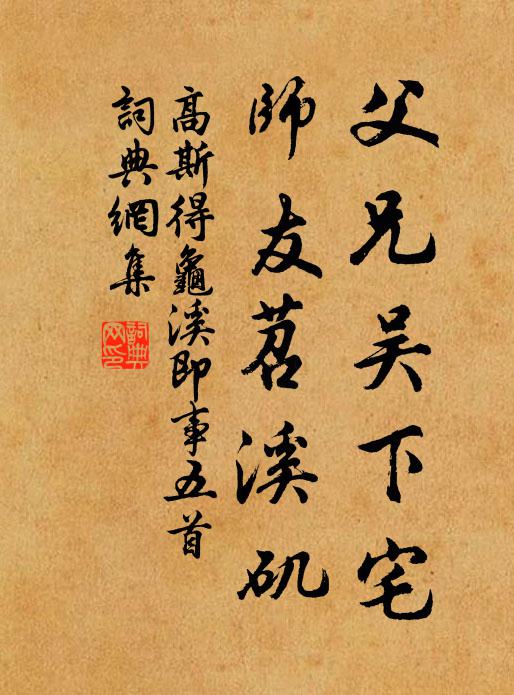 父兄吴下宅
師友苕溪矶
高斯得龜溪即事五首
詞典網集
詞典网印